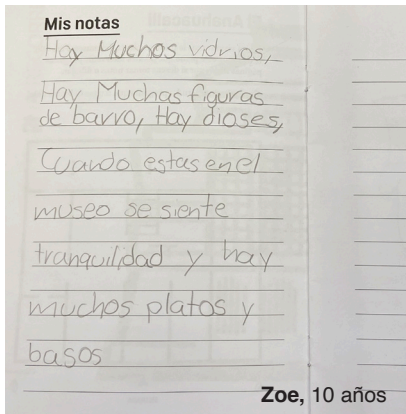 Mis notas
Hay Muchos vidrios,
Hay Muchas figuras
de barro, Hay dioses,
Cuando estas en el
museo se siente
tranquilidad y hay
muchos platos y
basos
Zoe, 10 años